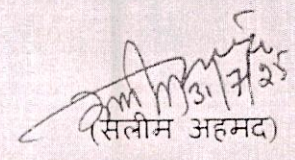 31/7/25
(सलीम अहमद)